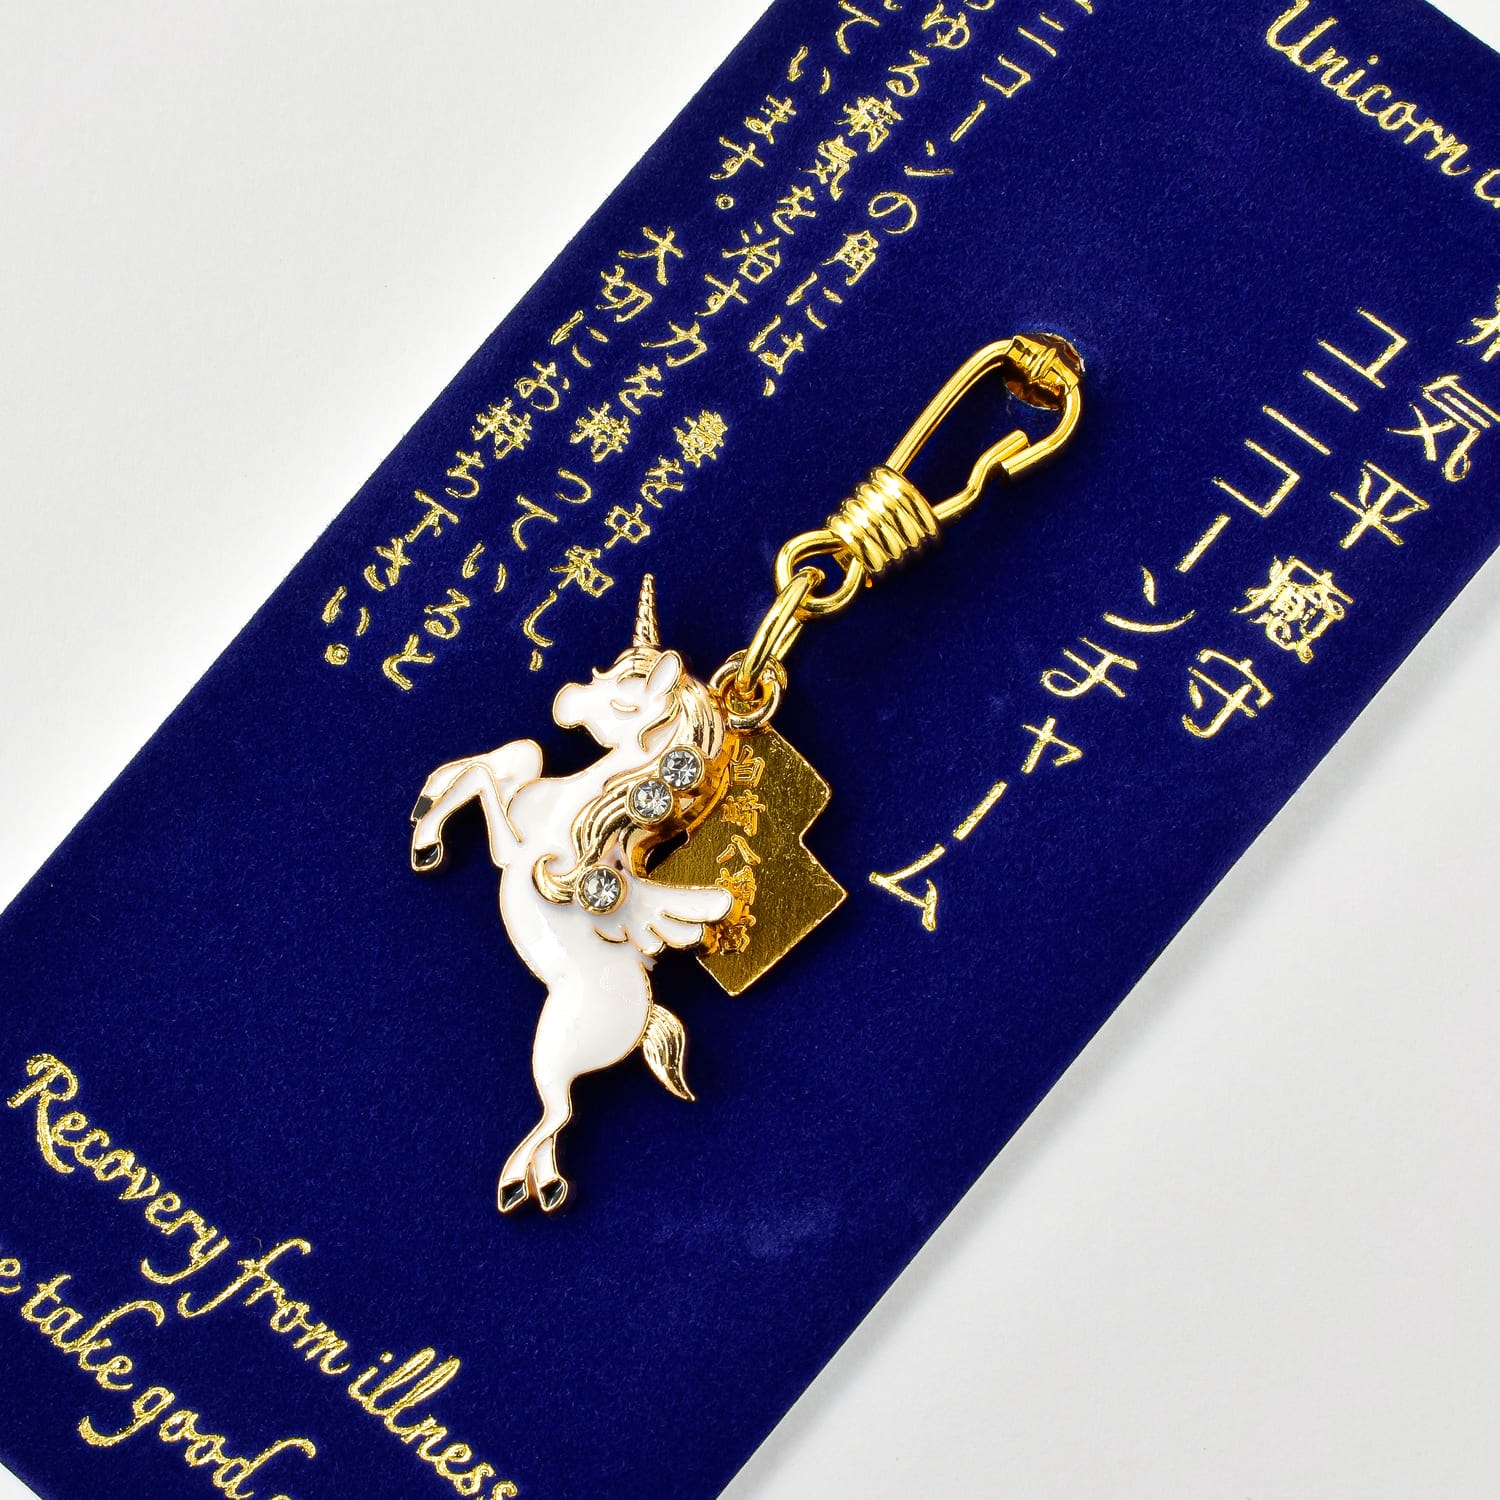 Unicorn
気平癒守
ユニコーンチャーム
ニコーンの角には、毒を中和し、
ゆる病気を治す力を持っていると
ています。大切にお持ち下さい。
伯崎八幡宮
Recovery from illness
take good